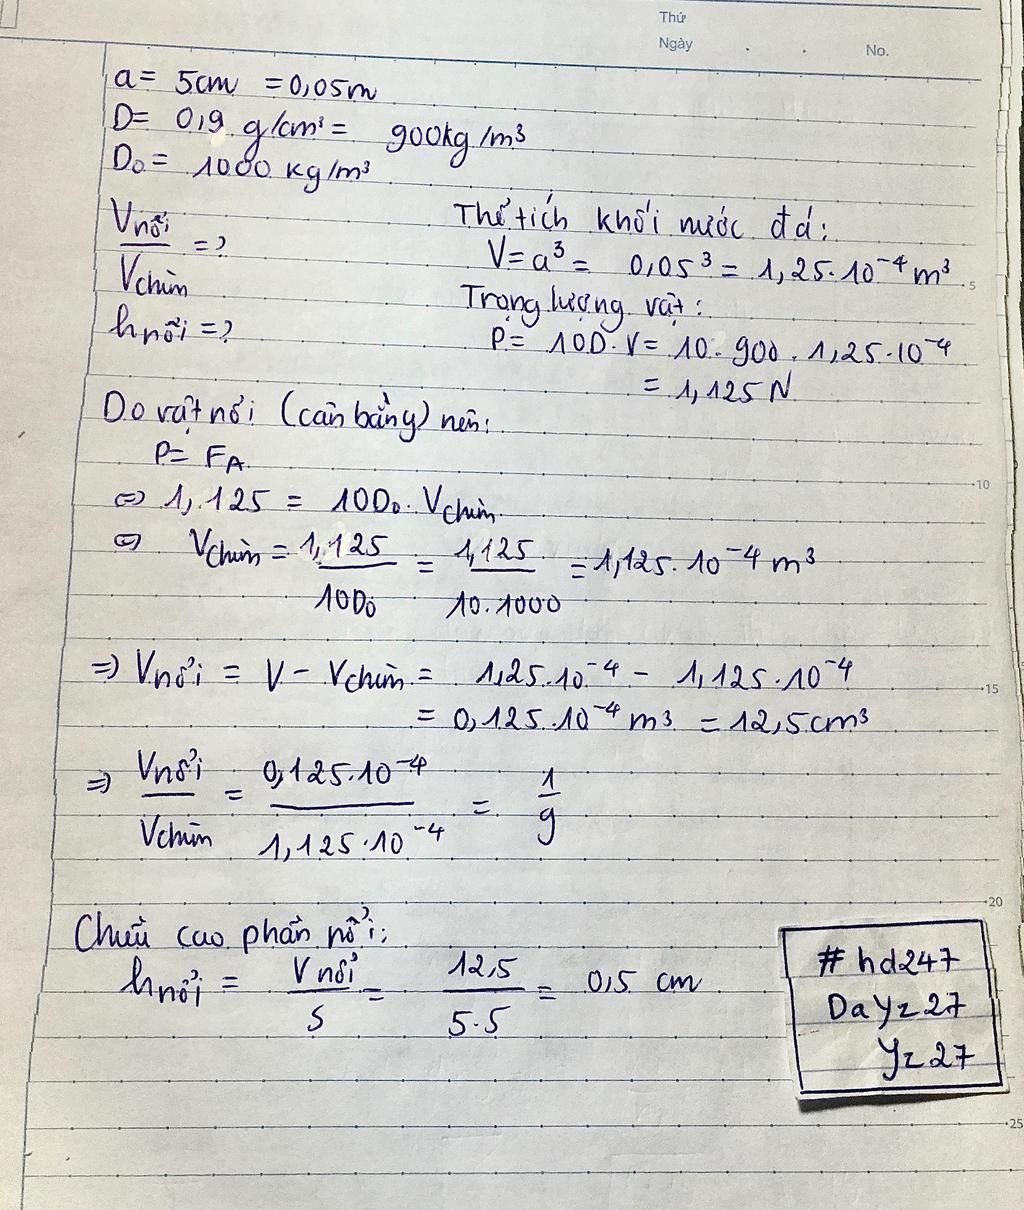 Thứ
Ngày . . No.
a = 5cm = 0,05m
D = 0,9 g/cm³ = 900kg/m³
D₀ = 1000 kg/m³
Vnổi / Vchìm = ?
hnổi = ?
Thể tích khối nước đá:
V = a³ = 0,05³ = 1,25.10⁻⁴ m³
5
Trọng lượng vật:
P = 10D.V = 10.900.1,25.10⁻⁴
= 1,125 N
Do vật nổi (cân bằng) nên:
P = FA
10
⇔ 1,125 = 10D₀.Vchìm
⇔ Vchìm = 1,125 / 10D₀ = 1,125 / 10.1000 = 1,125.10⁻⁴ m³
⇒ Vnổi = V - Vchìm = 1,25.10⁻⁴ - 1,125.10⁻⁴
15
= 0,125.10⁻⁴ m³ = 12,5cm³
⇒ Vnổi / Vchìm = 0,125.10⁻⁴ / 1,125.10⁻⁴ = 1 / 9
20
Chiều cao phần nổi:
hnổi = Vnổi / S = 12,5 / 5.5 = 0,5 cm
#hd247
DaYz27
Yz27
25